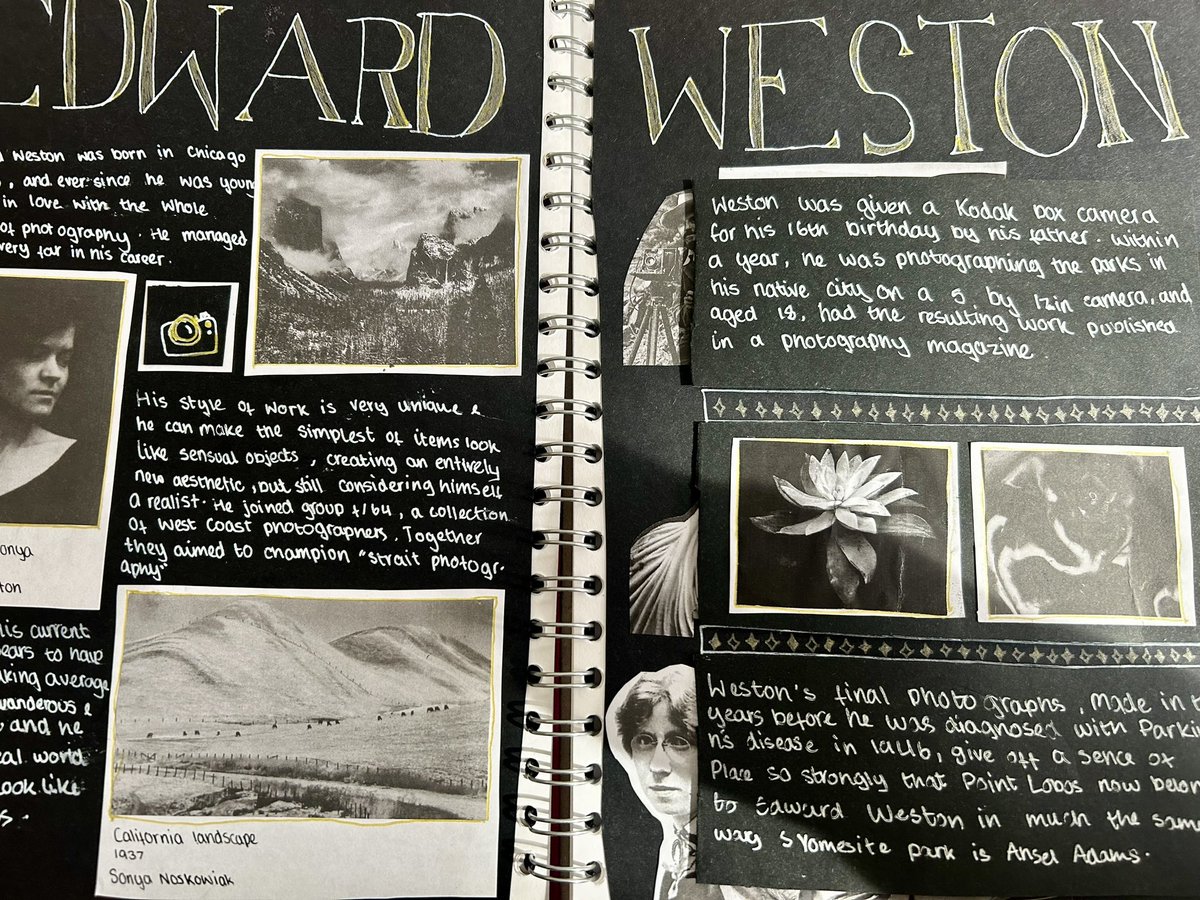 EDWARD
Weston was born in Chicago
, and ever since he was young
in love with the whole
of photography. He managed
very far in his career.
onya
ton
His style of work is very unique &
he can make the simplest of items look
like sensual objects, creating an entirely
new aesthetic, but still considering himself
a realist. He joined group f/64, a collection
of West Coast photographers. Together
they aimed to champion "strait photogr-
aphy"
His current
ears to have
aking average
wanderous &
and he
eal world
look like
s.
California landscape
1937
Sonya Noskowiak
WESTON
Weston was given a Kodak box camera
for his 16th birthday by his father. Within
a year, he was photographing the parks in
his native city on a 5, by 12in camera, and
aged 18, had the resulting work published
in a photography magazine.
Weston's final photographs, made in t
years before he was diagnosed with Parki
n's disease in 1946, give off a sence of
Place so strongly that Point Lobos now belon
to Edward Weston in much the same
way s Yomesite park is Ansel Adams.